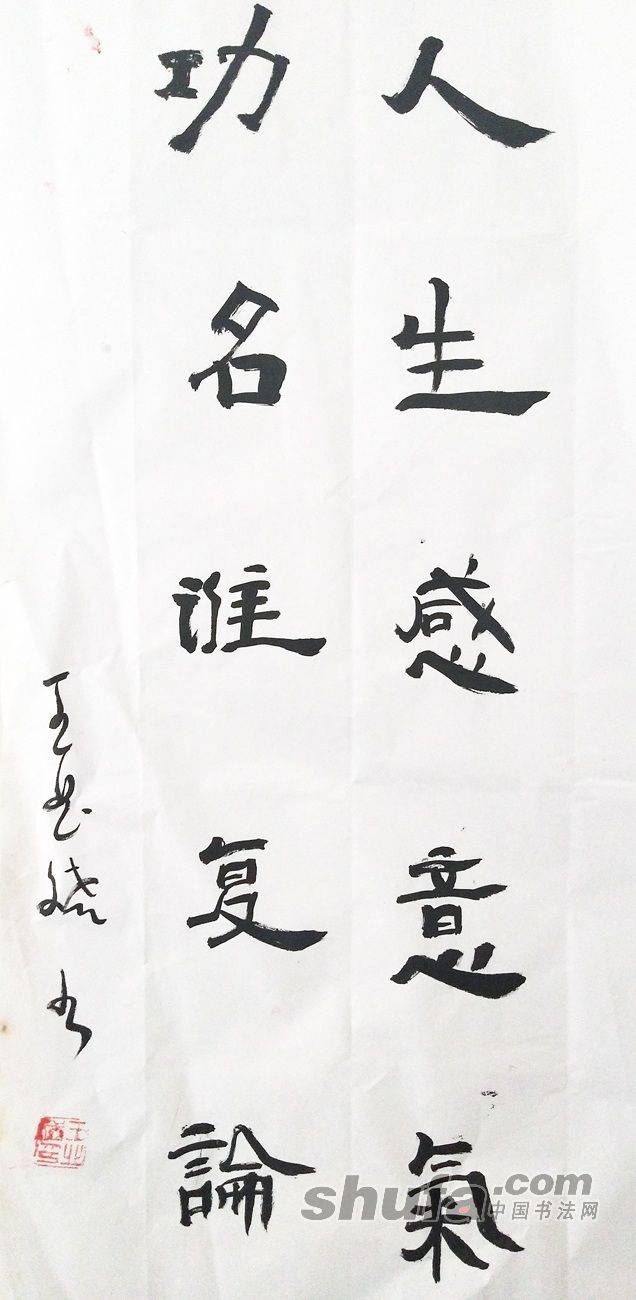 人生感意氣
功名谁复論
王
shufa.com
中国书法网